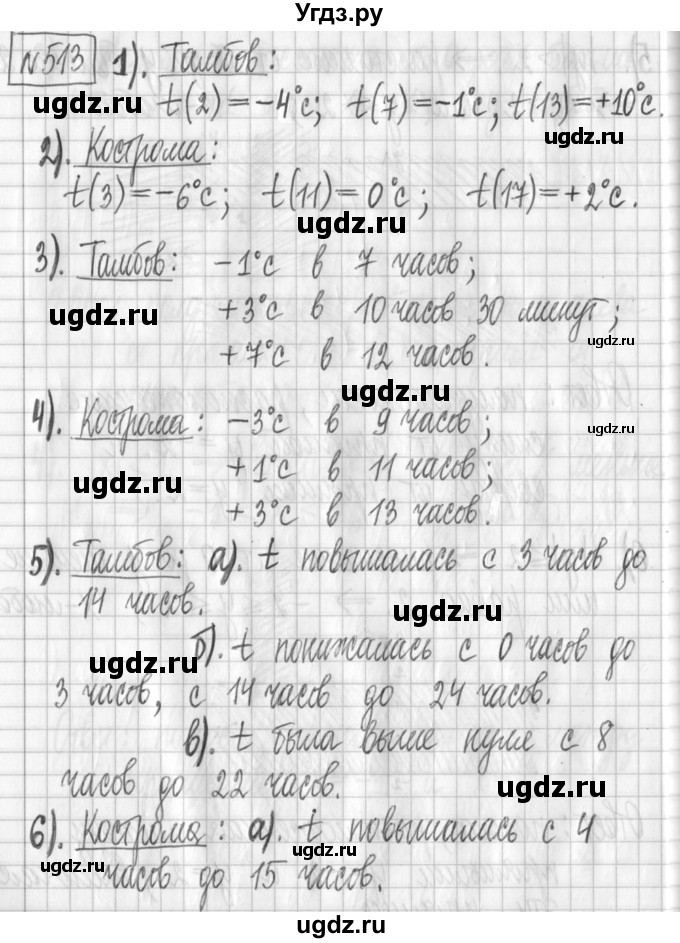 Угдз.ру
№513 1). Тамбов:
ugdz.ru
t(2)=-4°с; t(7)=-1°с; t(13)=+10°с.
ugdz.ru
2). Кострома:
t(3)=-6°с; t(11)=0°с; t(17)=+2°с.
ugdz.ru
3). Тамбов: -1°с в 7 часов;
+3°с в 10 часов 30 минут;
ugdz.ru
+7°с в 12 часов.
ugdz.ru
4). Кострома: -3°с в 9 часов;
ugdz.ru
+1°с в 11 часов;
ugdz.ru
+3°с в 13 часов.
5). Тамбов: а). t повышалась с 3 часов до
14 часов.
ugdz.ru
б). t понижалась с 0 часов до
ugdz.ru
3 часов, с 14 часов до 24 часов.
в). t была выше нуля с 8
часов до 22 часов.
ugdz.ru
6). Кострома: а). t повышалась с 4
ugdz.ru
часов до 15 часов.
ugdz.ru
ugdz.ru